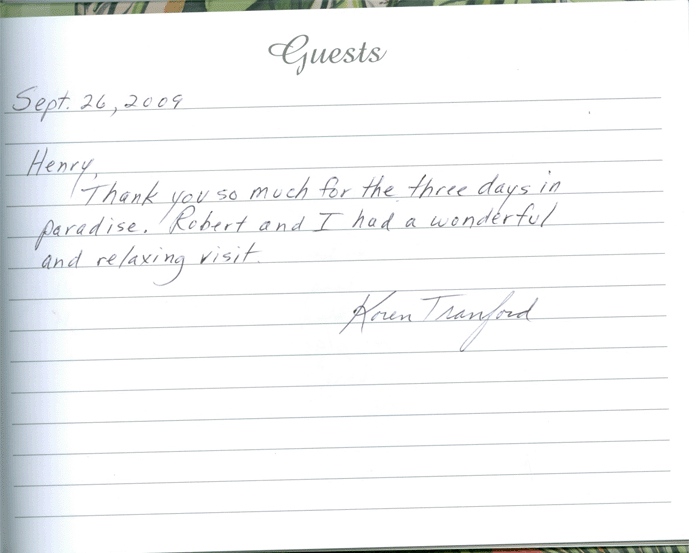 Guests
Sept. 26, 2009
Henry,
Thank you so much for the three days in
paradise. Robert and I had a wonderful
and relaxing visit.
Karen Tranford